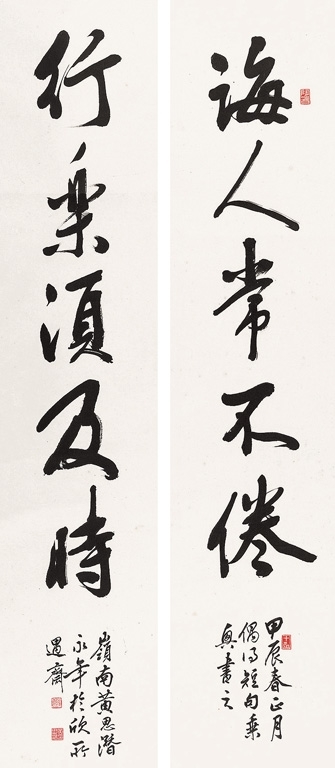 誨人常不倦
甲辰春正月
偶得短句乘
興書之
行樂須及時
嶺南黃思潛
永年於欣所
遇齋